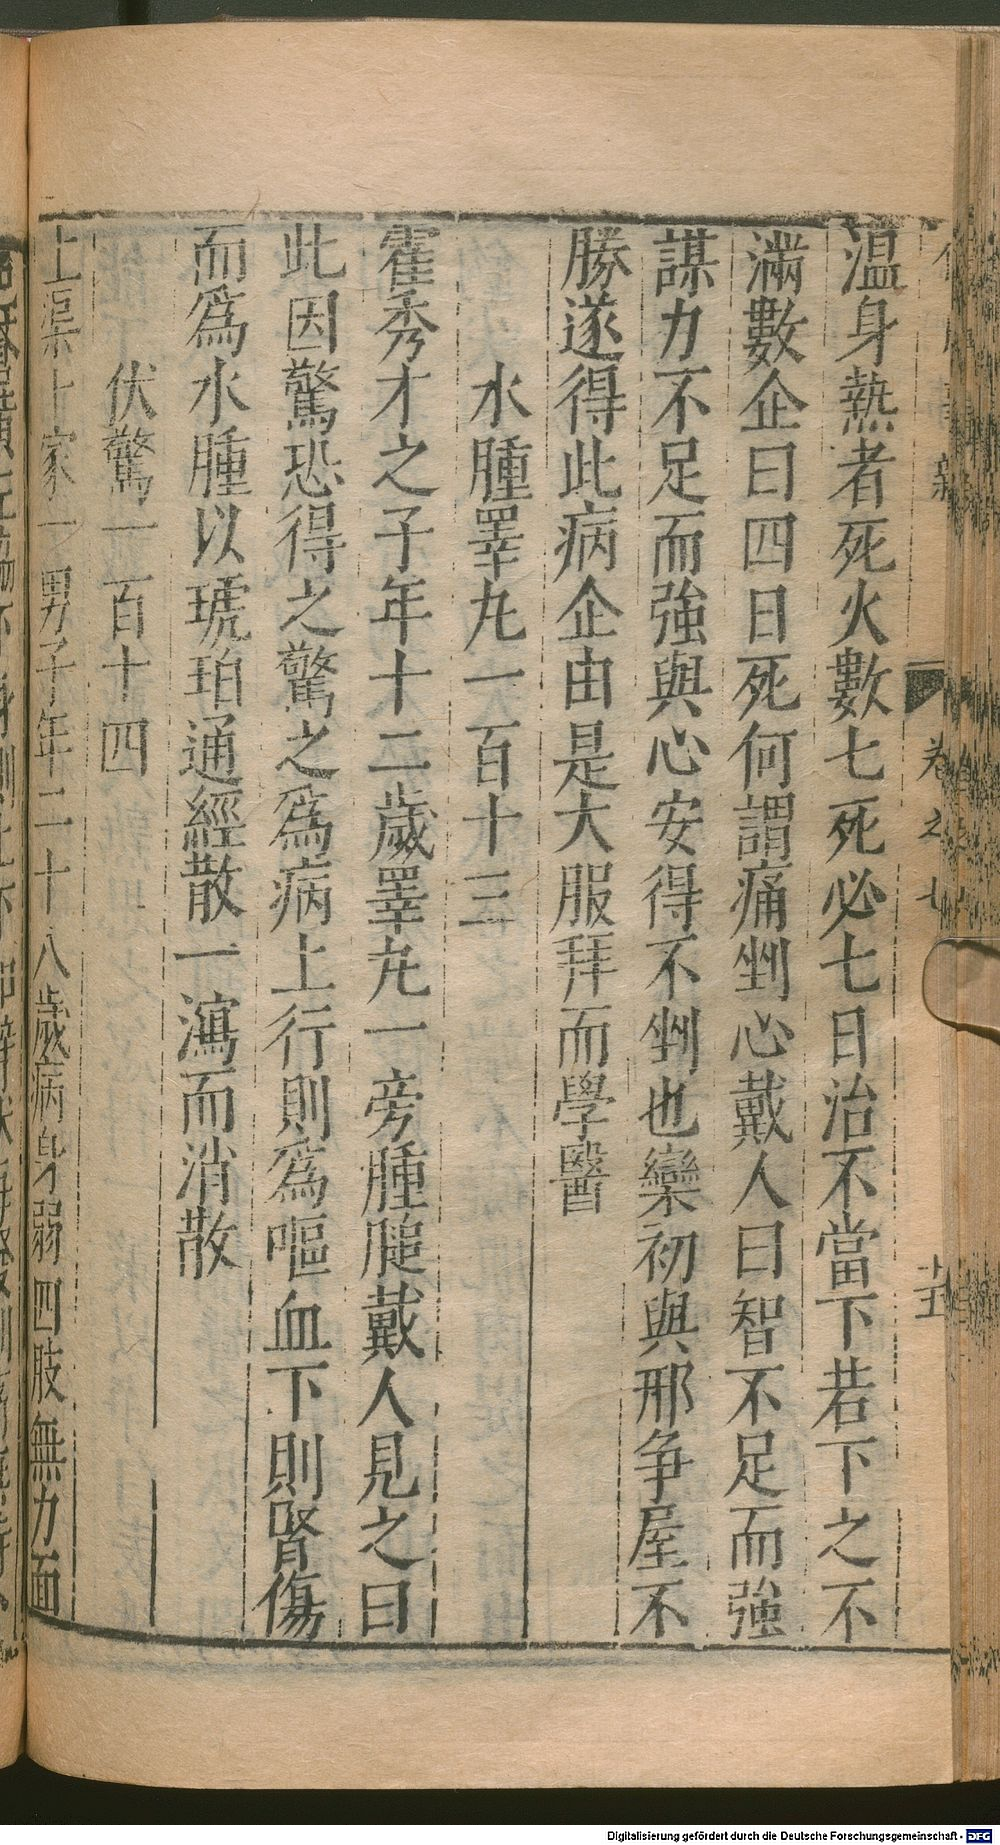 溫身熱者死火數七死必七日治不當下若下之不
滿數企曰四日死何謂痛剉心戴人曰智不足而強
謀力不足而強與心安得不剉也欒初與邢争屋不
勝遂得此病企由是大服拜而學醫
水腫睪丸一百十三
霍秀才之子年十二歲睪丸一旁腫腿戴人見之曰
此因驚恐得之驚之爲病上行則爲嘔血下則腎傷
而爲水腫以琥珀通經散一瀉而消散
伏驚一百十四
上渠卜家一男子年二十八歲病身弱四肢無力面
卷之七
十五
Digitalisierung gefördert durch die Deutsche Forschungsgemeinschaft - DFG